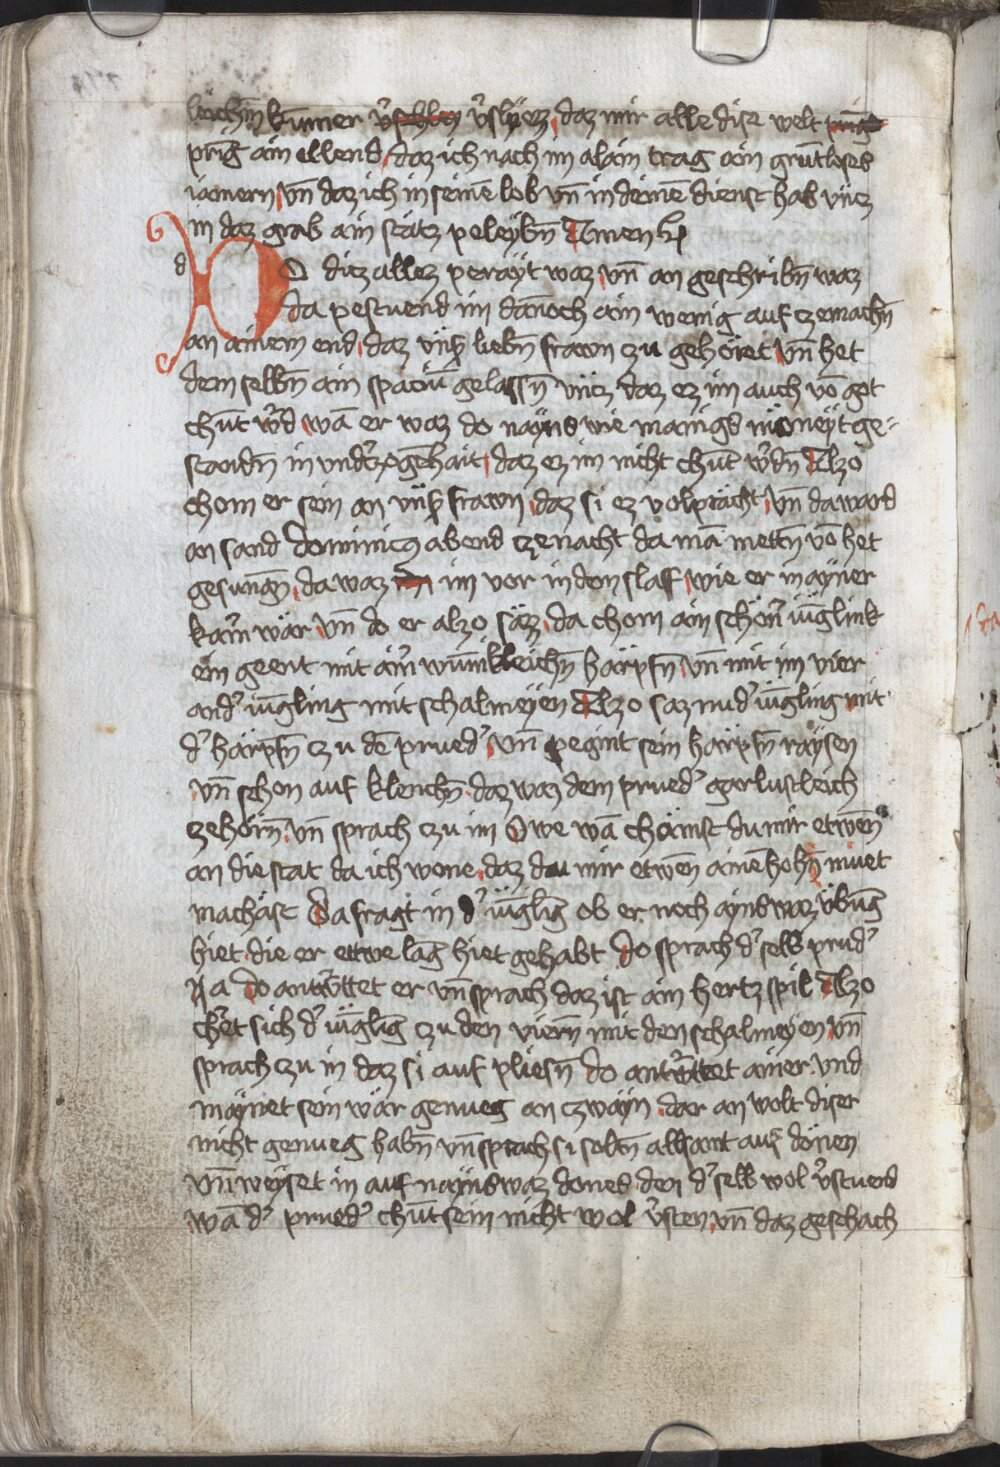 leichn̄ kum̄er v̓schlen v̓slÿezz daz mir alle dise welt
prīg ain ellend daz ich nach im alain trag ain grūtloses
iamern vn̄ daz ich in seinē lob vn̄ in deinē dienst hab vncz
in daz grab ain stätz peleybn̄ Amen
d
DO ditz allez perayt waz vn̄ an geschribn̄ waz
da pestuend im dānoch ain wenig auf czemachn̄
an ainem end daz vnß liebn̄ frawn czu gehöret vn̄ het
dem selbn̄ ain spaciū gelassn̄ vncz daz ez im auch vō got
chūt w̓d wā er waz do nayns wie manigs moneyt ge-
standn̄ in vnd̓zogēhait daz ez im nicht chūt w̓dn̄ Alzo
chom er sein an vnß frawn daz si ez volprächt vn̄ da ward
an sand dominicꝰ abend cze nacht da mā mettn̄ vō het
gesungn̄ da waz im vor in dem slaf wie er in ayner
kam̓ wär vn̄ do er alzo säz da chom ain schön̓ iūglink
ein geent mit aim̓ wūnikleichn̄ härpfn̄ vn̄ mit im vier
and̓ iūgling mit schalmeyen Alzo saz nu d̓ iūgling mit
d̓ härpfn̄ czu dē prued̓ vn̄ pegint sein härpfn̄ raysen
vn̄ schon auf klenchn̄ daz waz dem prued̓ gar lustleich
ze hörn̄ vn̄ sprach czu im Owe wā chämst du mir etwen̄
an die stat da ich wone daz du mir etwen̄ ainē hohn̄ muet
machäst Da fragt in d̓ iūglīg ob er noch ayns waz vbūg
hiet die er ettwe lāg hiet gehabt do sprach d̓ selb prud̓
Ja do antw̓ttet er vn̄ sprach daz ist ain hertz spil Alzo
ch̓et sich d̓ iūglīg czu den viern̄ mit den schalmeyen vn̄
sprach czu in daz si auf pliesn̄ do antw̓ttet ainer vnd
maynet sein wär genueg an czwayn dar an wolt diser
nicht genueg habn̄ vn̄ sprach si soltn̄ allsant auf dönen
vn̄ weyset in auf nayns waz dones den d̓ selb wol v̓stuend
wā d̓ prued̓ chūt sein nicht wol v̓sten vn̄ daz geschach